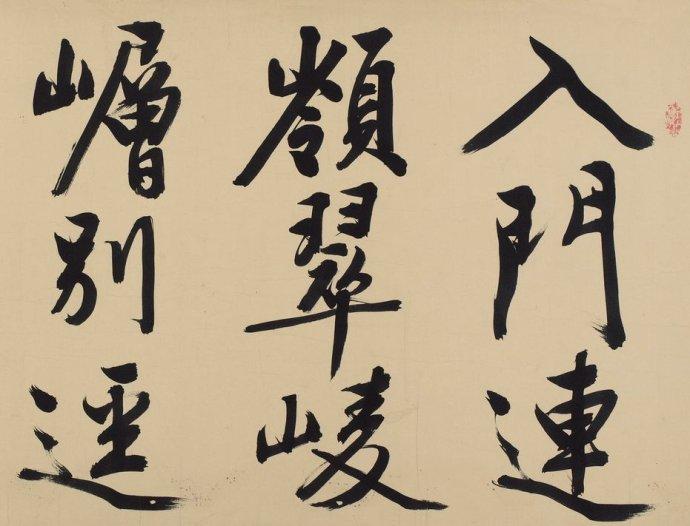 入門連
嶺翠崚
嶒別逕